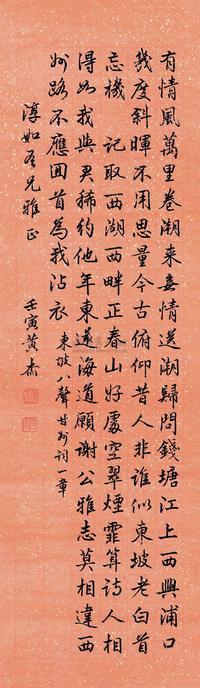 有情風萬里卷潮來無情送潮歸問錢塘江上西興浦口
幾度斜暉不用思量今古俯仰昔人非誰似東坡老白首
忘機 記取西湖西畔正春山好處空翠煙霏算詩人相
得如我與君稀約他年東還海道願謝公雅志莫相違西
州路不應回首為我沾衣 東坡八聲甘州詞一章
淳如吾兄雅正
壬寅黃杰